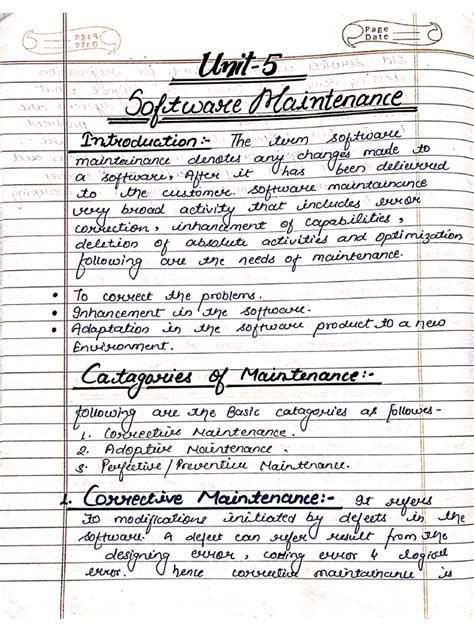 Page
Date
Unit-5
Software Maintenance
Introduction:- The term software
maintainance denotes any changes made to
a software, After it has been delieverd
to the customer. software maintainance
very broad activity that includes error
correction, inhancement of capabilities,
deletion of absolute activities and optimization
following are the needs of maintenance.
• To correct the problems.
• Enhancement in the software.
• Adaptation in the software product to a new
Environment.
Catagories of Maintenance:-
following are the Basic catagories as followes-
1. Corrective Maintenance.
2. Adoptive Maintenance.
3. Perfective/Preventive Maintenance.
1. Corrective Maintenance:- It refers
to modifications initiated by defects in the
software. A defect can refer result from the
designing error, coding error & logical
error. hence corrective maintainance is